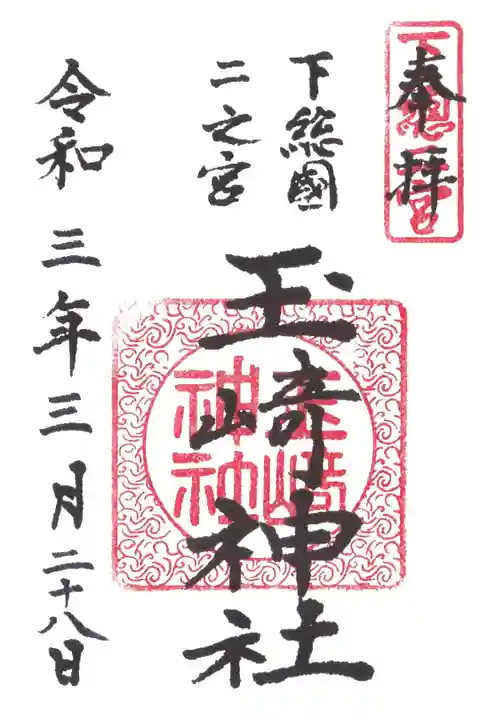 奉拝
下総二宮
下総國
二之宮
玉﨑神社
玉﨑神社
令和三年三月二十八日